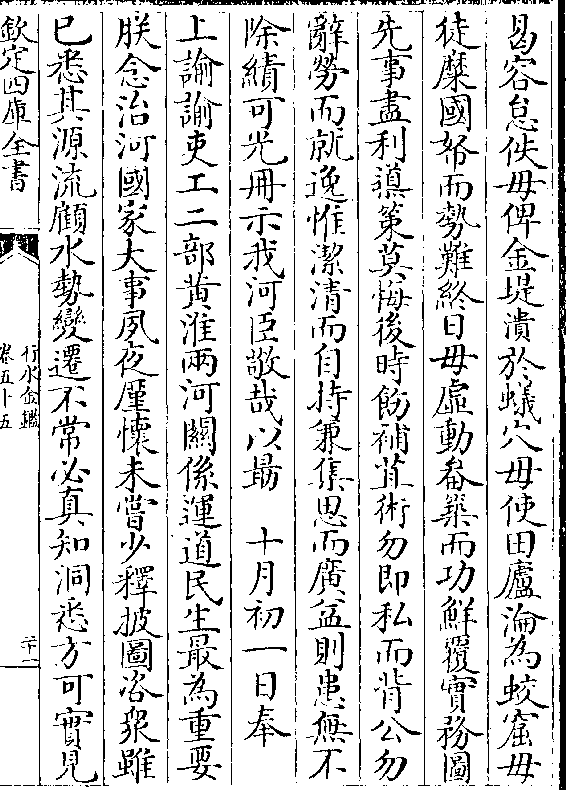 曷容怠佚毋俾金堤潰於蟻穴毋使田廬淪為蛟窟毋
徒糜國帑而勢難終日毋虛動畚築而功鮮覆實務圖
先事盡利導策莫悔後時飭補苴術勿即私而背公勿
辭勞而就逸惟潔清而自持兼集思而廣益則患無不
除績可光冊示我河臣敬哉以勗 十月初一日奉
上諭諭吏工二部黄淮兩河關係運道民生最為重要
朕念治河國家大事夙夜厪懷未嘗少釋披圖咨衆雖
已悉其源流顧水勢變遷不常必真知洞悉方可實見
欽定四庫全書
行水金鑑
卷五十五